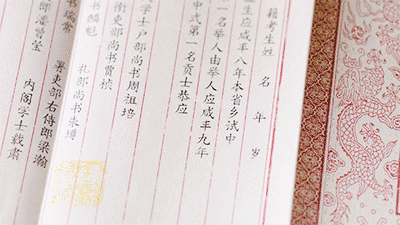 籍考生姓 名 年 岁
生应咸丰八年本省乡试中
一名举人由举人应咸丰九年
中式第一名贡士恭应
学士户部尚书周祖培
衔吏部尚书贾桢
书麟魁
礼部尚书朱嶟
书瑞常
学吏部右侍郎梁瀚
部潘曾莹
内阁学士载肃